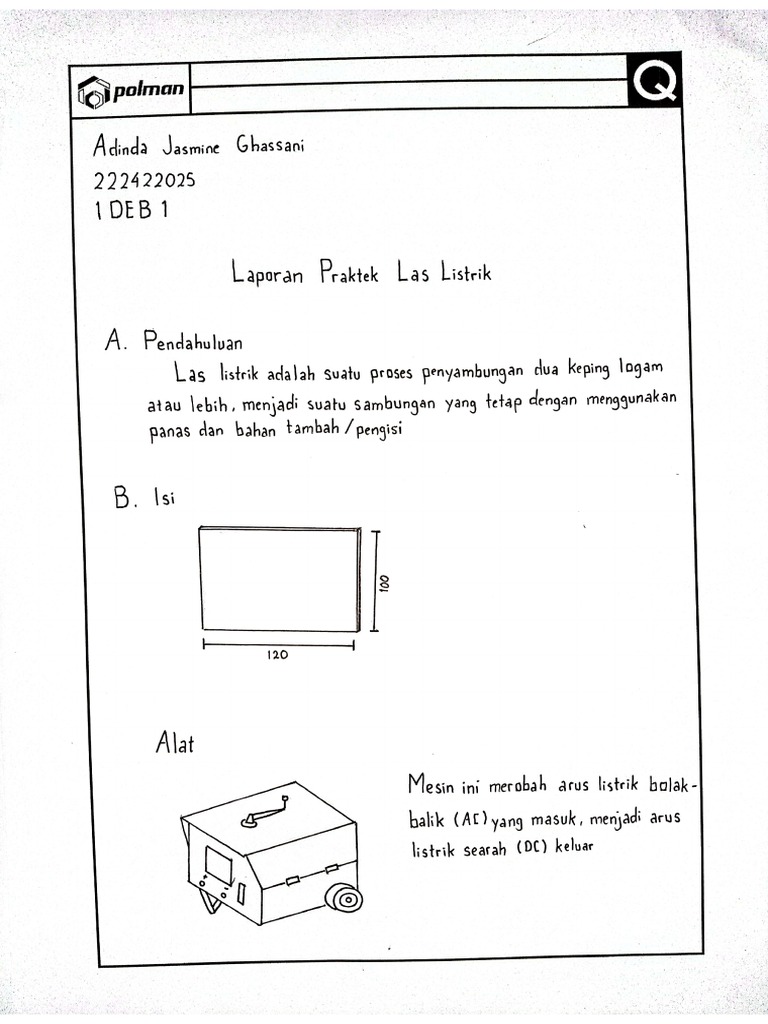 polman
Q
Adinda Jasmine Ghassani
222422025
1 DEB 1
Laporan Praktek Las Listrik
A. Pendahuluan
Las listrik adalah suatu proses penyambungan dua keping logam
atau lebih, menjadi suatu sambungan yang tetap dengan menggunakan
panas dan bahan tambah/pengisi
B. Isi
100
120
Alat
Mesin ini merobah arus listrik bolak-
balik (AC) yang masuk, menjadi arus
listrik searah (DC) keluar
+ -